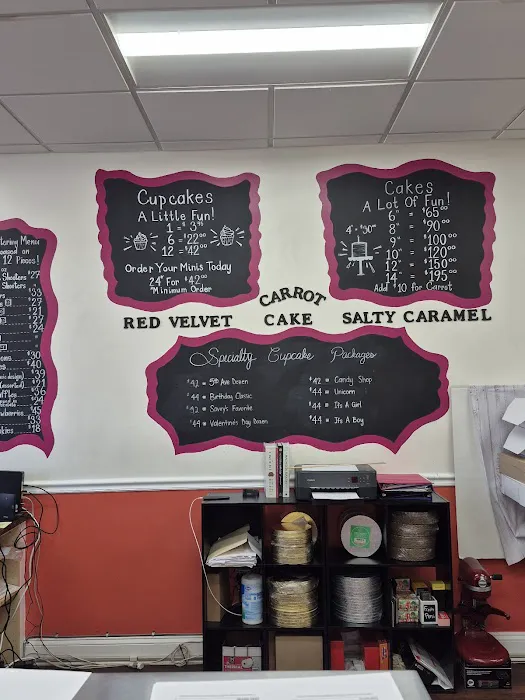 Cupcakes
A Little Fun!
1 = $3.75
6 = $22.00
12 = $42.00
Order Your Minis Today
24 For $42.00
*Minimum Order
Cakes
A Lot Of Fun!
4" $50.00
6" = $65.00
8" = $90.00
9" = $100.00
10" = $120.00
12" = $150.00
14" = $195.00
Add $10 for Carrot
RED VELVET
CARROT
CAKE
SALTY CARAMEL
Specialty Cupcake Packages
$42 = 5th Ave Dozen
$44 = Birthday Classic
$42 = Savvy's Favorite
$44 = Valentine's Day Dozen
$42 = Candy Shop
$44 = Unicorn
$44 = It's A Girl
$44 = It's A Boy
Menu
12 Pieces!
Shooters $27
Shooters
$33
$27
$21
$27
$24
$30
$40
$39
$21
$36
$24
$45
$33
$18